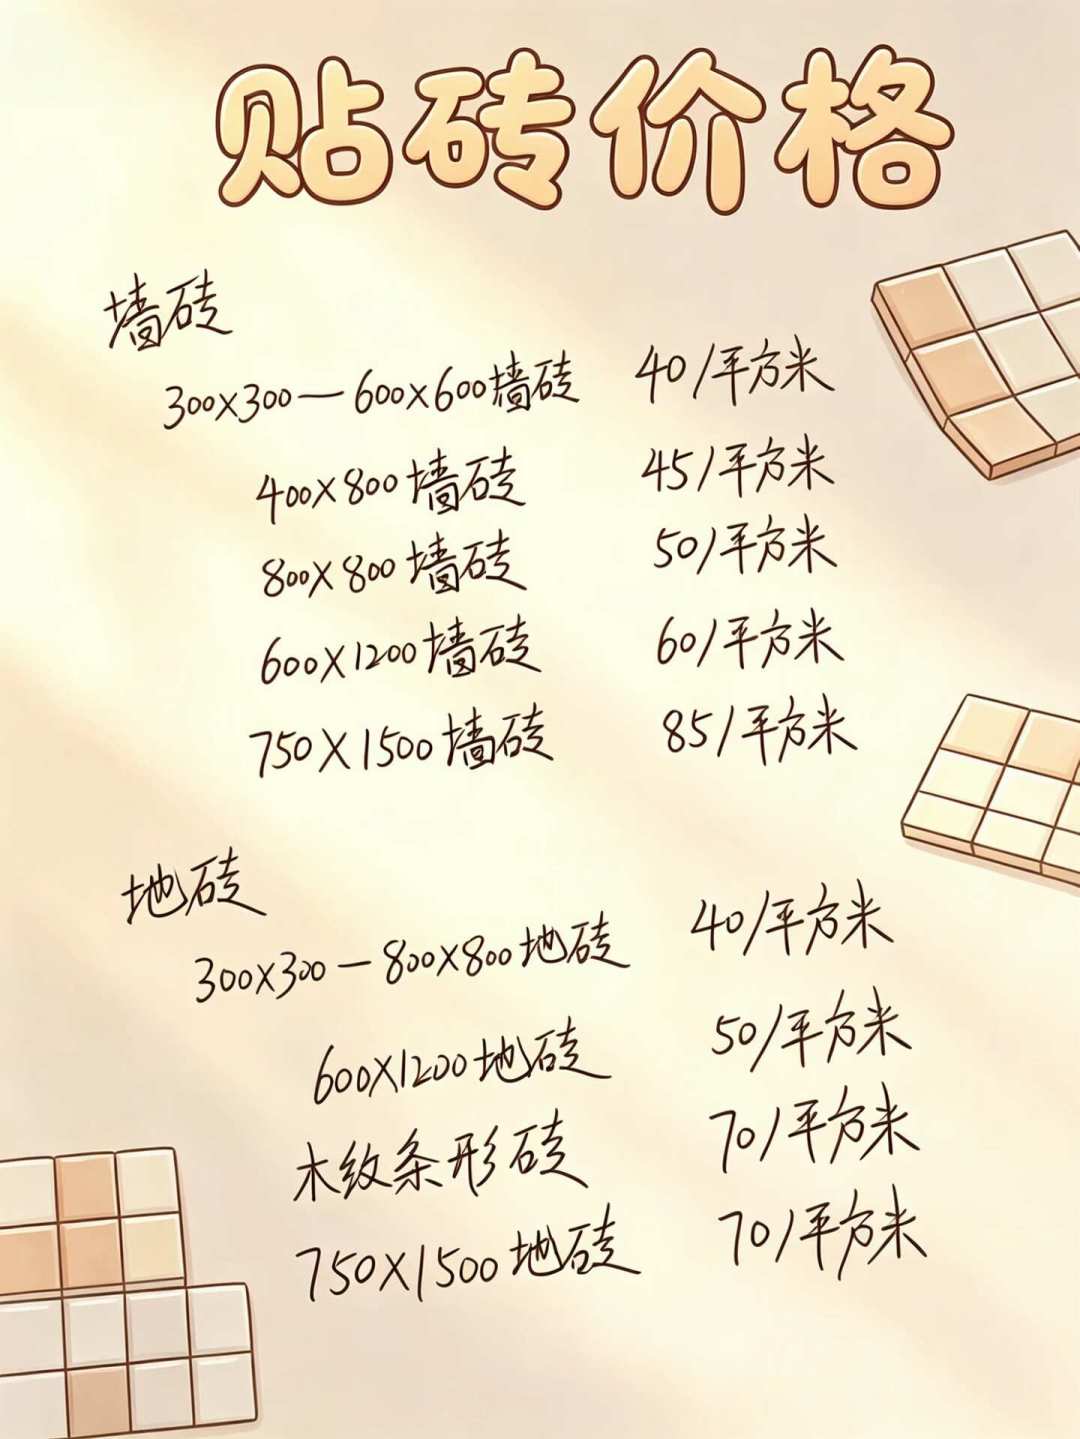 贴砖价格
墙砖
300x300—600x600墙砖 40/平方米
400x800墙砖 45/平方米
800x800墙砖 50/平方米
600x1200墙砖 60/平方米
750x1500墙砖 85/平方米
地砖
300x300—800x800地砖 40/平方米
600x1200地砖 50/平方米
木纹条形砖 70/平方米
750x1500地砖 70/平方米